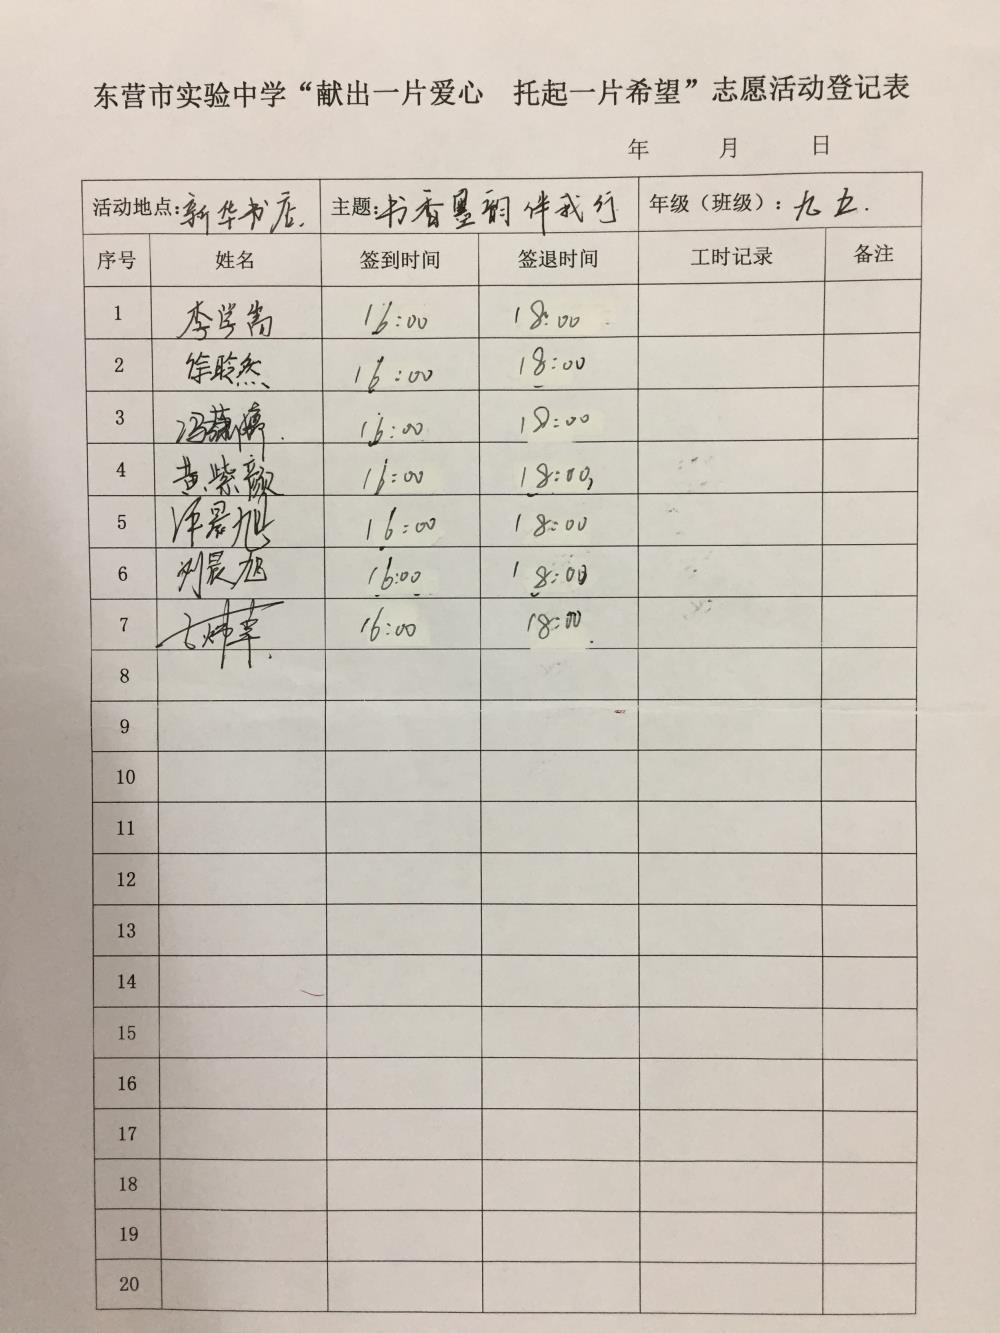 东营市实验中学“献出一片爱心 托起一片希望”志愿活动登记表
年 月 日
活动地点:新华书店. 主题:书香墨韵伴我行 年级（班级）：九五.
序号 姓名 签到时间 签退时间 工时记录 备注
1 李学尚 16:00 18:00
2 徐聆然 16:00 18:00
3 冯 16:00 18:00
4 黄紫颜 16:00 18:00
5 晨旭 16:00 18:00
6 刘晨旭 16:00 18:00
7 16:00 18:00
8
9
10
11
12
13
14
15
16
17
18
19
20